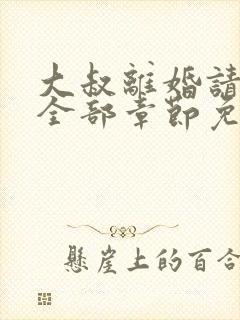 大叔離婚請
全部章節免
懸崖上的百合